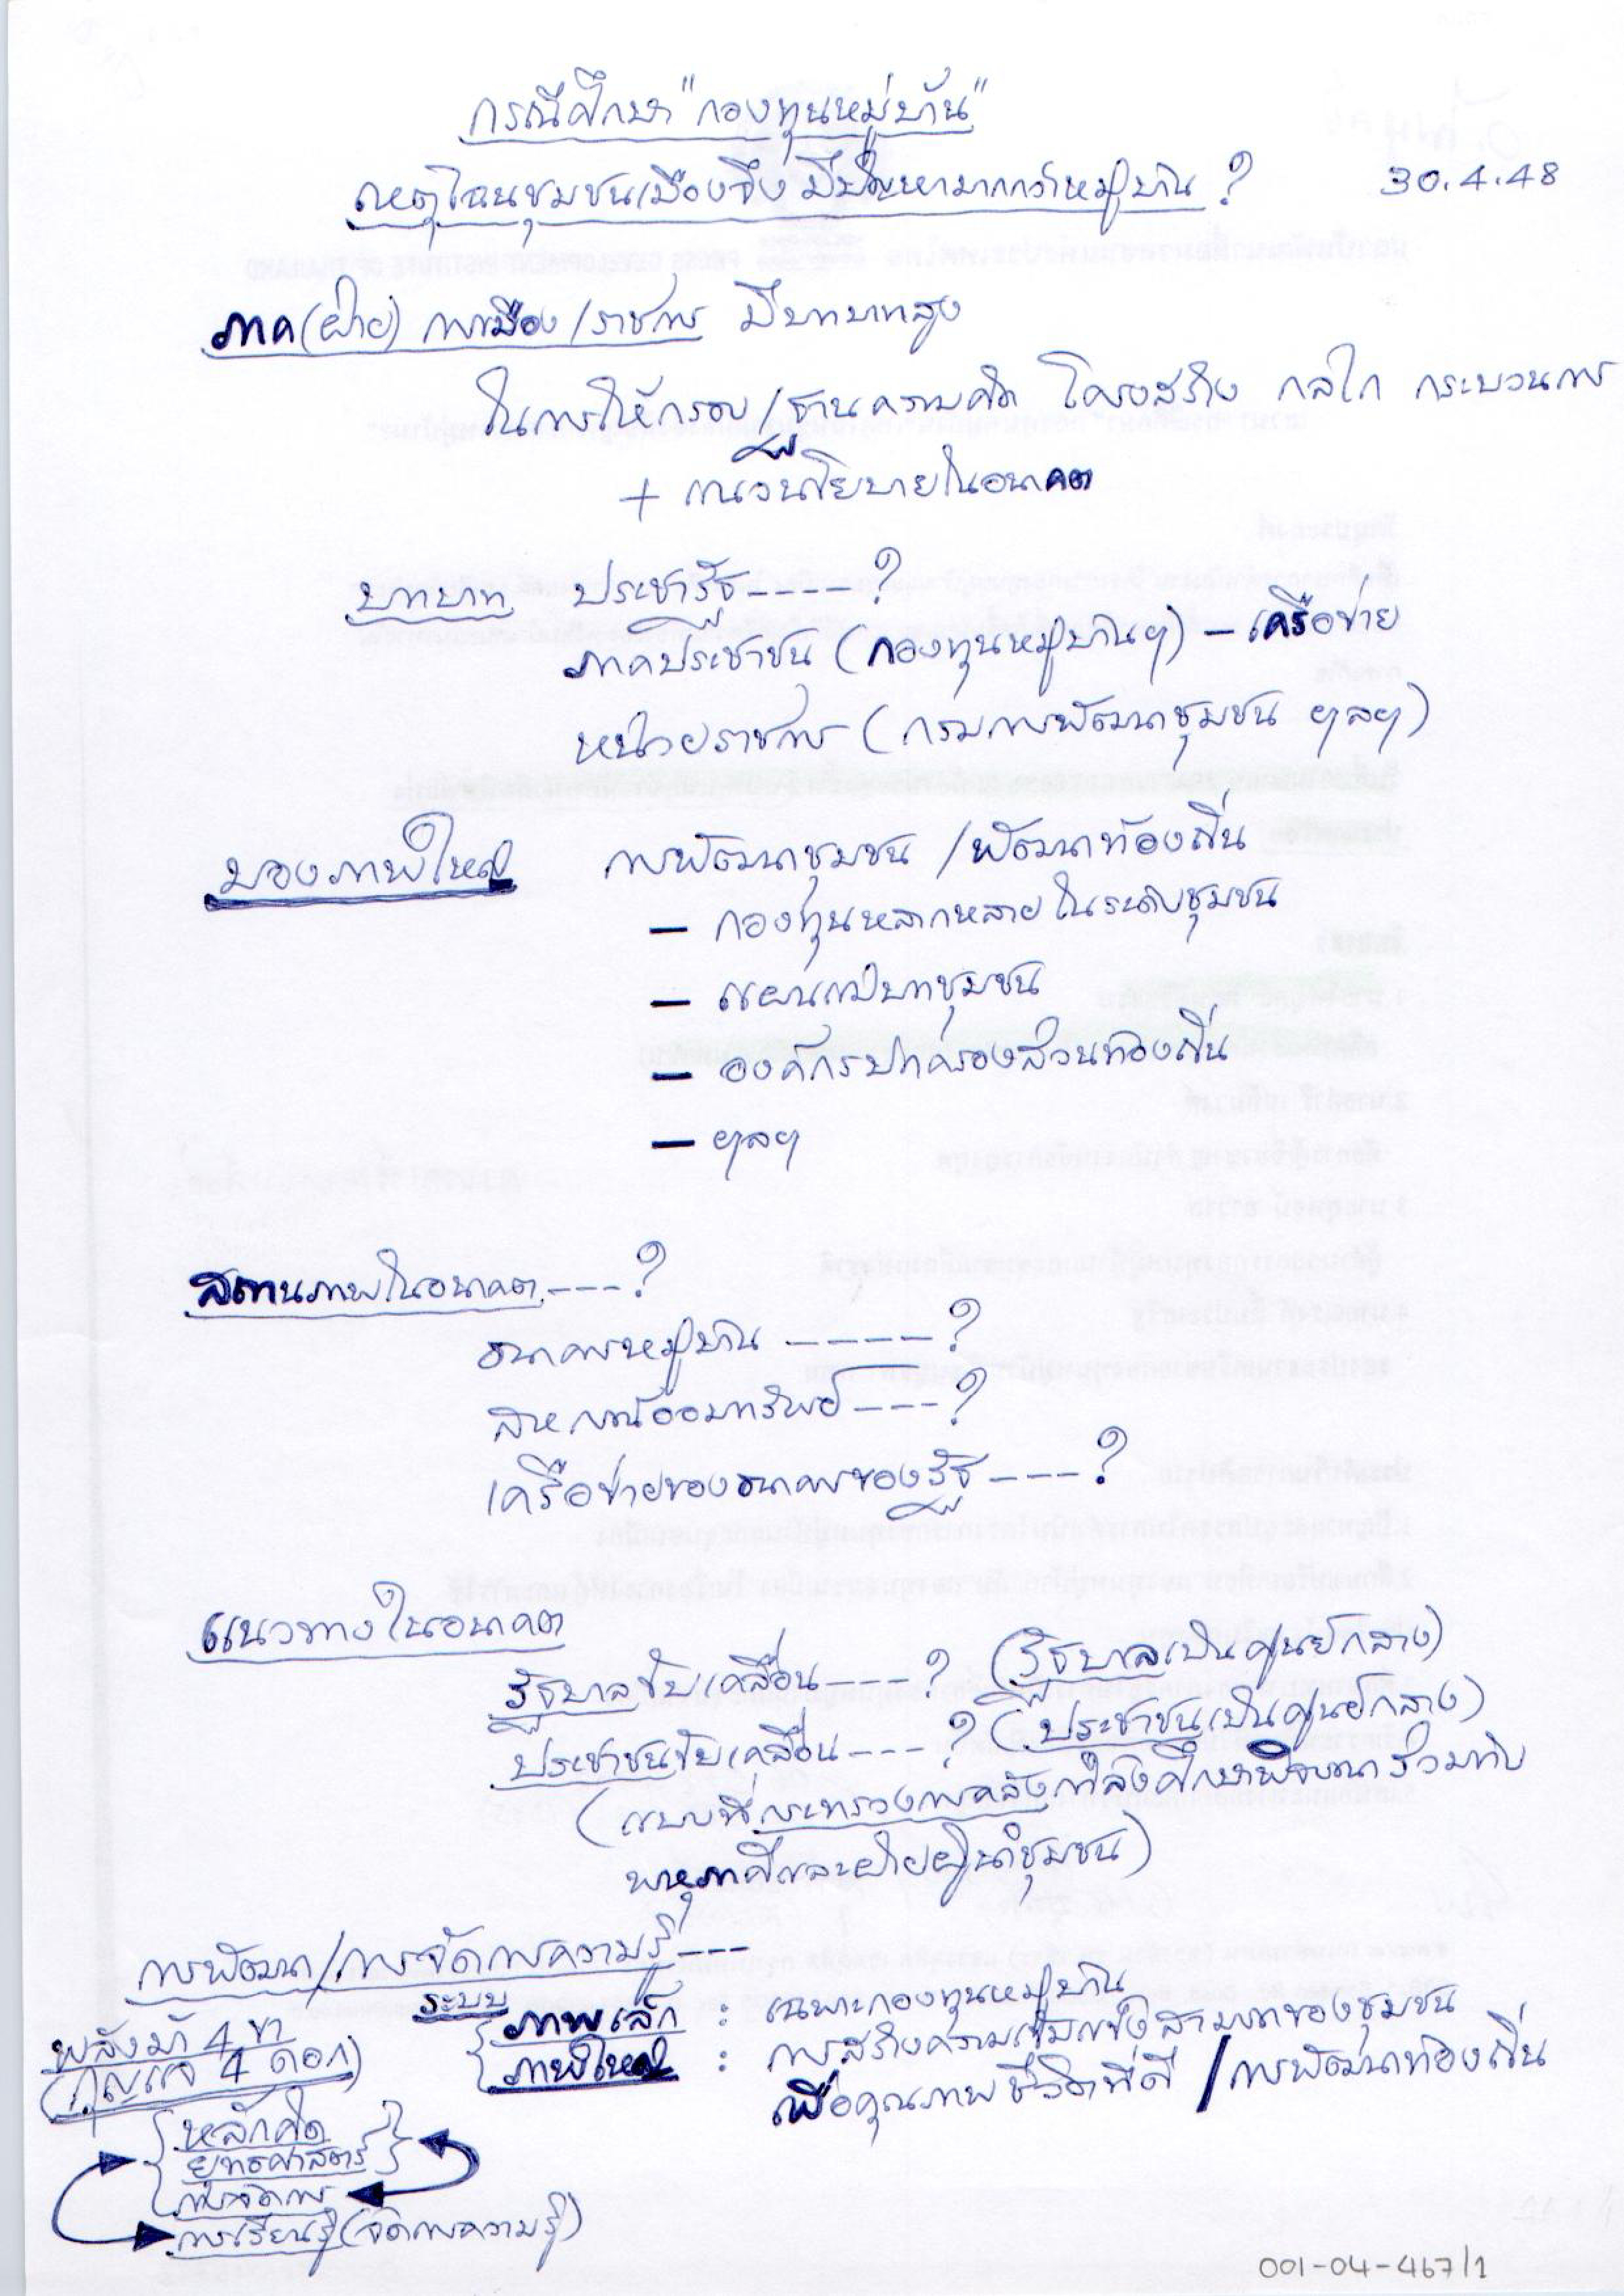 กรณีศึกษา "กองทุนหมู่บ้าน"
เหตุไฉนชุมชนเมืองจึงมีปัญหามากกว่าหมู่บ้าน ?
30.4.48
ภาค(ฝ่าย) การเมือง/ราชการ มีบทบาทสูง
ในการให้กรอบ/ฐานความคิด โครงสร้าง กลไก กระบวนการ
+ แนวนโยบายในอนาคต
บทบาท ประชารัฐ-----?
ภาคประชาชน (กองทุนหมู่บ้านฯ) – เครือข่าย
หน่วยราชการ (กรมการพัฒนาชุมชน ฯลฯ)
มองภาพใหญ่ การพัฒนาชุมชน /พัฒนาท้องถิ่น
– กองทุนหลากหลายในระดับชุมชน
– แผนแม่บทชุมชน
– องค์กรปกครองส่วนท้องถิ่น
– ฯลฯ
สถานภาพในอนาคต----?
ธนาคารหมู่บ้าน -----?
สหกรณ์ออมทรัพย์----?
เครือข่ายของธนาคารของรัฐ----?
แนวทางในอนาคต
รัฐบาลขับเคลื่อน----? (รัฐบาลเป็นศูนย์กลาง)
ประชาชนขับเคลื่อน----? (ประชาชนเป็นศูนย์กลาง)
(แบบที่กระทรวงการคลังกำลังศึกษาพิจารณาร่วมกับ
พหุภาคีและฝ่ายผู้นำชุมชน)
การพัฒนา/การจัดการความรู้---
ระบบ
ภาพเล็ก : เฉพาะกองทุนหมู่บ้าน
ภาพใหญ่ : การสร้างความเข้มแข็งสามารถของชุมชน
เพื่อคุณภาพชีวิตที่ดี /การพัฒนาท้องถิ่น
พลังม้า 4 ขา
(กุญแจ 4 ดอก)
หลักคิด
ยุทธศาสตร์
การจัดการ
การเรียนรู้(จัดการความรู้)
001-04-467/1